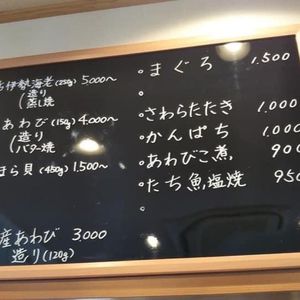 伊勢海老(250g) 5,000~
(造り
蒸し焼
あわび(150g) 4,000~
(造り
バター焼
ほら貝(450g) 1,500~
産あわび 3,000
造り(120g)
・まぐろ 1,500
・さわらたたき 1,000
・かんぱち 1,000
・あわびこ煮 900
・たち魚塩焼 950